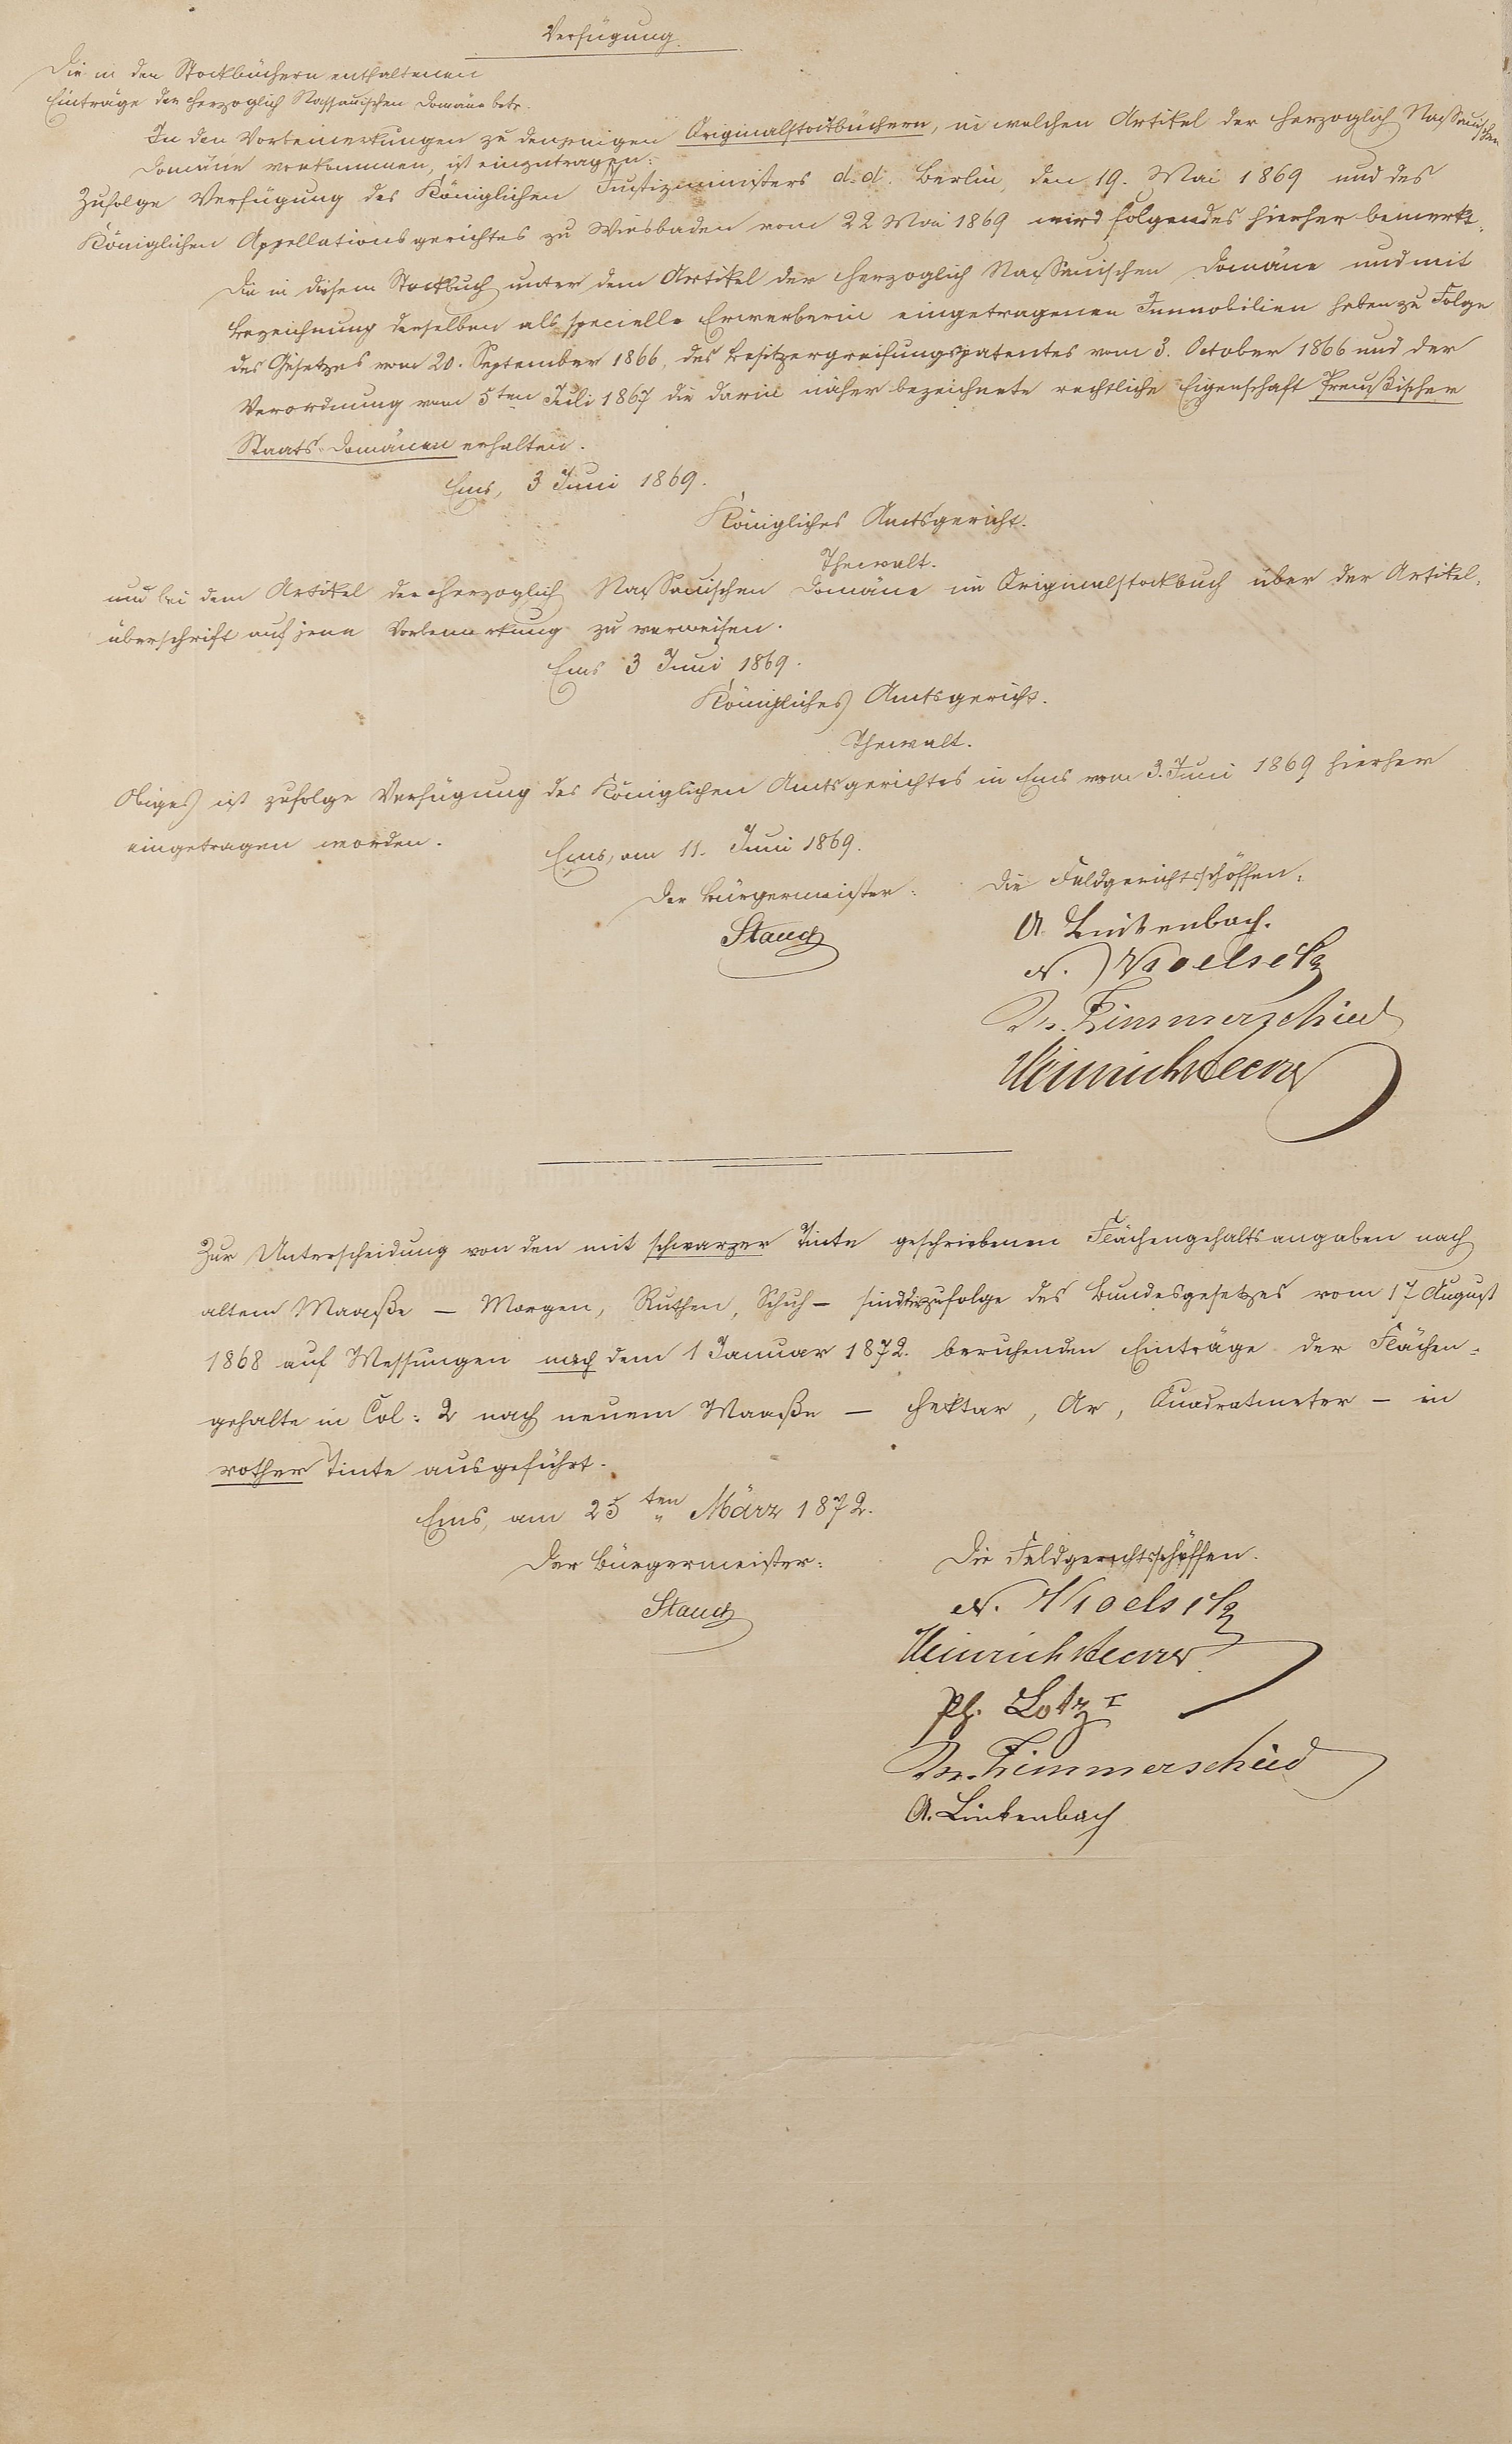 Verfügung.
Die in den Stockbüchern enthaltenen
Einträge der Herzoglich Nassauischen Domäne betr.
In den Vorbemerkungen zu denjenigen Originalstockbüchern, in welchen Artikel der Herzoglich Nassauischen
Domäne vorkommen, ist einzutragen:
Zufolge Verfügung des Königlichen Justizministers d. d. Berlin, den 19. Mai 1869 und des
Königlichen Appellationsgerichtes zu Wiesbaden vom 22 Mai 1869 wird folgendes hierher bemerkt.
Die in diesem Stockbuch unter dem Artikel der Herzoglich Nassauischen Domäne und mit
Bezeichnung derselben als specielle Erwerberin eingetragenen Immobilien haben zu Folge
des Gesetzes vom 20. September 1866, des Besitzergreifungspatentes vom 3. October 1866 und der
Verordnung vom 5ten Juli 1867 die darin näher bezeichnete rechtliche Eigenschaft Preußischer
Staats-Domänen erhalten.
Ems, 3 Juni 1869.
Königliches Amtsgericht.
Thewalt.
und bei dem Artikel der Herzoglich Nassauischen Domäne im Originalstockbuch über der Artikel-
überschrift auf jene Vorbemerkung zu verweisen.
Ems 3 Juni 1869.
Königliches Amtsgericht.
Thewalt.
Obiges ist zufolge Verfügung des Königlichen Amtsgerichtes in Ems vom 3. Juni 1869 hierher
eingetragen worden.
Ems, am 11. Juni 1869.
Der Bürgermeister: Die Feldgerichtsschöffen:
A. Linkenbach.
N.
Zimmerschied
Heinrich
Zur Unterscheidung von den mit schwarzer Tinte geschriebenen Flächengehaltsangaben nach
altem Maaße – Morgen, Ruthen, Schuh – sind die zufolge des Bundesgesetzes vom 17 August
1868 auf Messungen nach dem 1 Januar 1872. beruhenden Einträge der Flächen-
gehalte in Col: 2 nach neuem Maaße – Hektar, Ar, Quadratmeter – in
rother Tinte ausgeführt.
Ems, am 25ten März 1872.
Der Bürgermeister: Die Feldgerichtsschöffen.
N.
Heinrich
Ph. Lotz I
Zimmerschied
A. Linkenbach